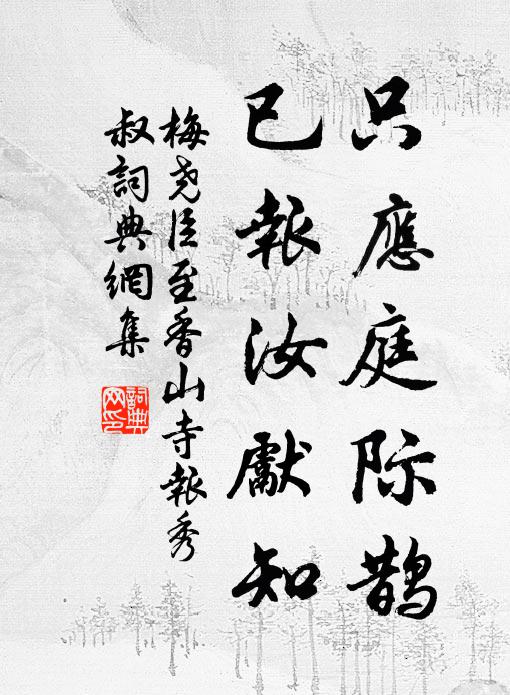 只應庭际鵲
已報汝獻知
梅堯臣至香山寺報秀
叔詞典網集
詞典网印